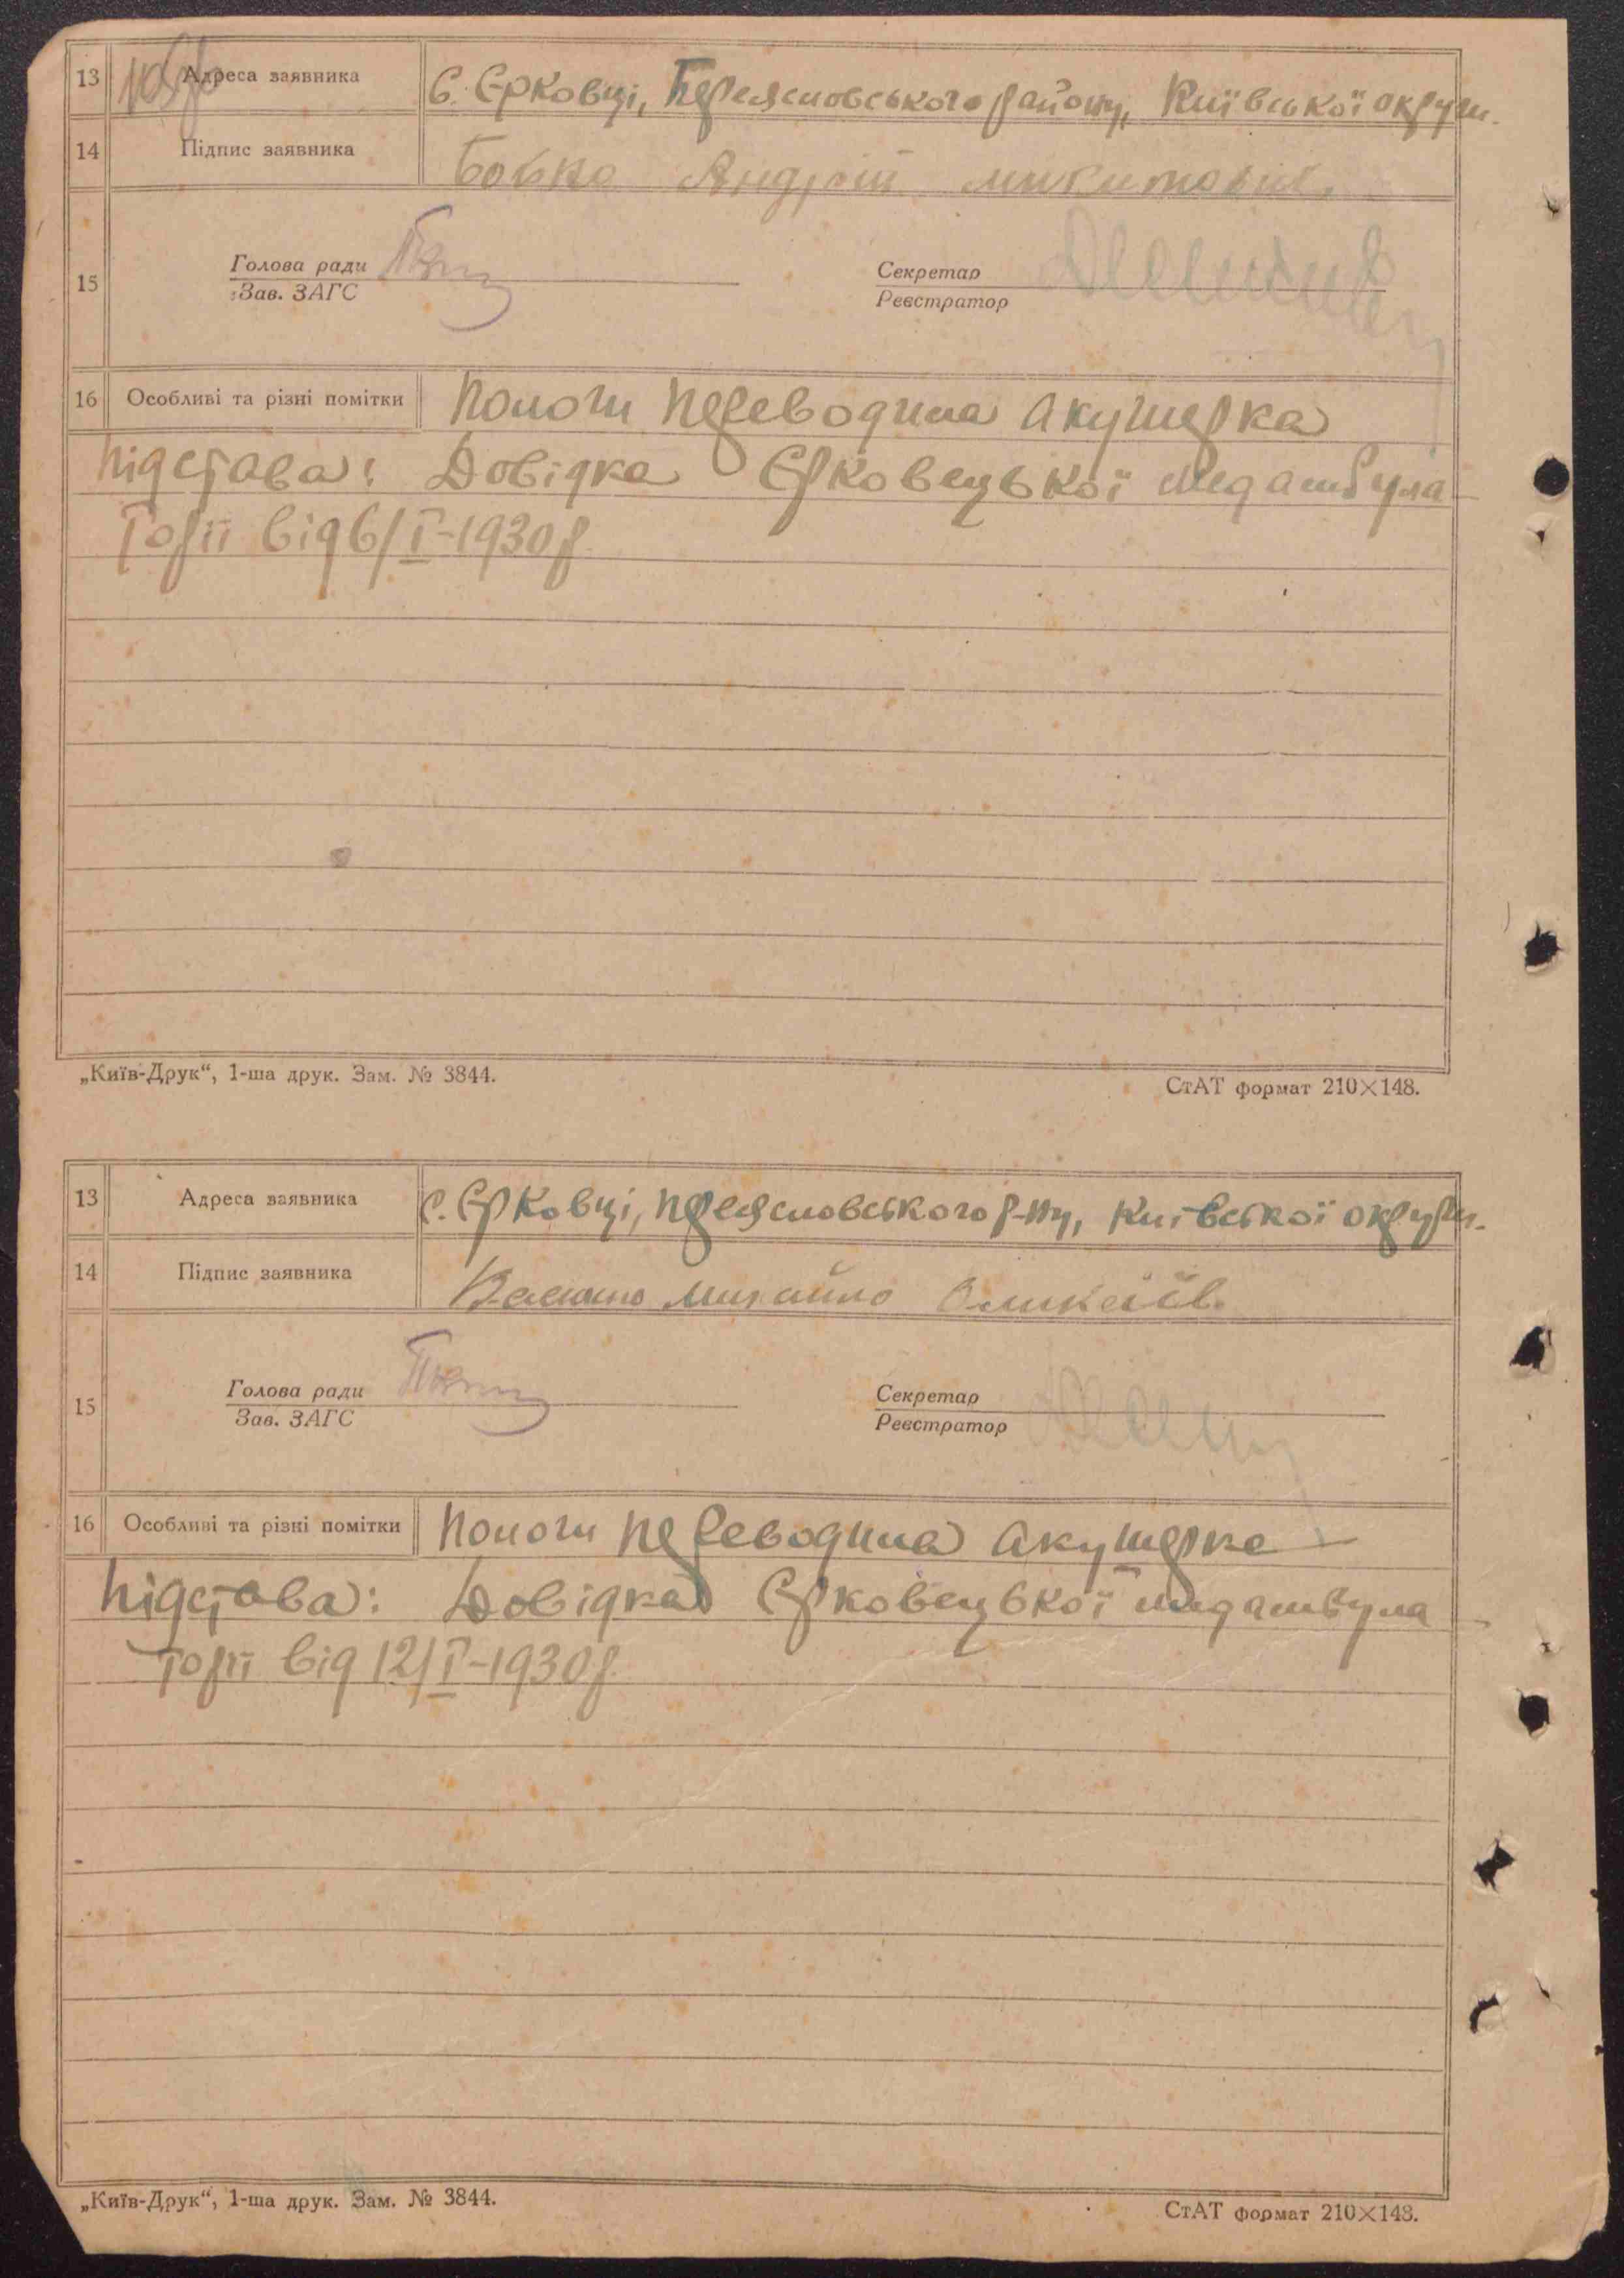 13 Адреса заявника С. Єрковці, Переясловського району, Київської округи.
14 Підпис заявника Бобко Андрій микитович
15 Голова ради Секретар
Зав. ЗАГС Реєстратор
16 Особливі та різні помітки Пологи переводила акушерка
Підстава: Довідка Єрковецької медамбула
торії від 6/I-1930 р.
„Київ-Друк“, 1-ша друк. Зам. № 3844. СтАТ формат 210×148.
13 Адреса заявника С. Єрковці, Переясловського р-ну, Київської округи.
14 Підпис заявника Михайло
15 Голова ради Секретар
Зав. ЗАГС Реєстратор
16 Особливі та різні помітки Пологи переводила акушерка
Підстава: Довідка Єрковецької медамбула
торії від 12/I-1930 р.
„Київ-Друк“, 1-ша друк. Зам. № 3844. СтАТ формат 210×148.